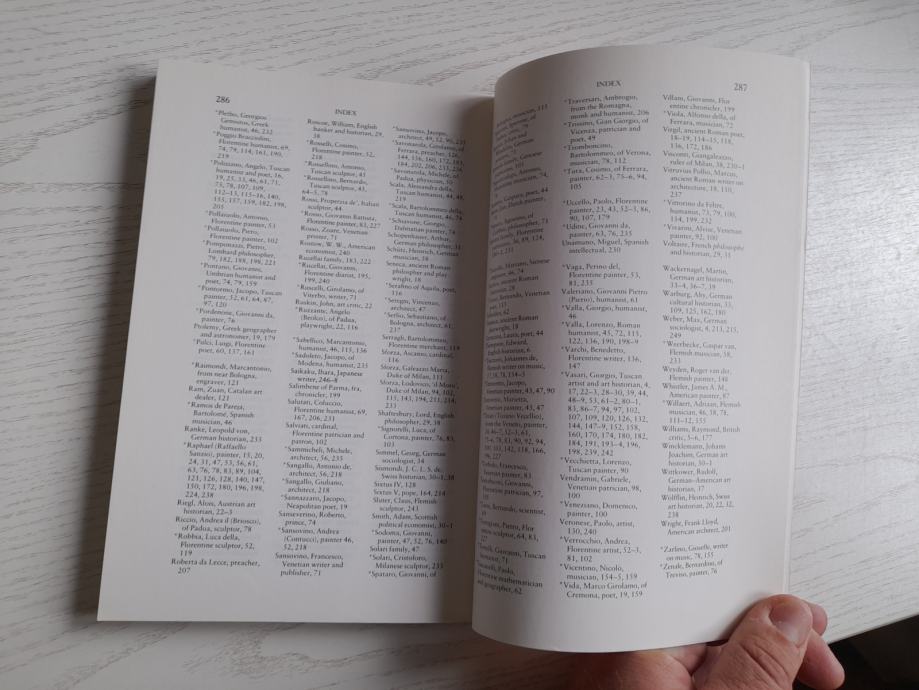 286
INDEX
*Pletho, Georgios
Gemistos, Greek
humanist, 46, 232
*Poggio Bracciolini,
Florentine humanist, 69,
74, 79, 114, 161, 190,
219
*Poliziano, Angelo, Tuscan
humanist and poet, 16,
19, 25, 33, 46, 61, 71,
73, 78, 107, 109,
112–13, 115–16, 140,
155, 157, 159, 182, 198,
205
*Pollaiuolo, Antonio,
Florentine painter, 53
*Pollaiuolo, Piero,
Florentine painter, 102
*Pomponazzi, Pietro,
Lombard philosopher,
79, 182, 188, 198, 221
*Pontano, Giovanni,
Umbrian humanist and
poet, 74, 79, 159
*Pontormo, Jacopo, Tuscan
painter, 52, 61, 64, 67,
97, 120
*Pordenone, Giovanni da,
painter, 76
Ptolemy, Greek geographer
and astronomer, 19, 179
*Pulci, Luigi, Florentine
poet, 60, 137, 161
*Raimondi, Marcantonio,
from near Bologna,
engraver, 121
Ram, Zuan, Catalan art
dealer, 121
*Ramos de Pareja,
Bartolomé, Spanish
musician, 46
Ranke, Leopold von,
German historian, 233
*Raphael (Raffaello
Sanzio), painter, 15, 20,
24, 31, 47, 53, 56, 61,
63, 76, 78, 83, 89, 104,
121, 126, 128, 140, 147,
150, 172, 180, 196, 198,
224, 238
Riegl, Alois, Austrian art
historian, 22–3
Riccio, Andrea il (Briosco),
of Padua, sculptor, 78
*Robbia, Luca della,
Florentine sculptor, 52,
119
Roberta da Lecce, preacher,
207
Roscoe, William, English
banker and historian, 29,
38
*Rosselli, Cosimo,
Florentine painter, 52,
218
*Rossellino, Antonio,
Tuscan sculptor, 45
*Rossellino, Bernardo,
Tuscan sculptor, 45,
64–5, 78
Rossi, Properzia de', Italian
sculptor, 44
*Rosso, Giovanni Battista,
Florentine painter, 83, 227
Rosso, Zoare, Venetian
printer, 71
Rostow, W. W., American
economist, 240
Rucellai family, 183, 222
*Rucellai, Giovanni,
Florentine diarist, 195,
199, 240
*Ruscelli, Girolamo, of
Viterbo, writer, 71
Ruskin, John, art critic, 22
*Ruzzante, Angelo
(Beolco), of Padua,
playwright, 22, 116
*Sabellico, Marcantonio,
humanist, 46, 115, 156
*Sadoleto, Jacopo, of
Modena, humanist, 235
Saikaku, Ihara, Japanese
writer, 246–8
Salimbene of Parma, fra,
chronicler, 199
Salutati, Coluccio,
Florentine humanist, 69,
167, 206, 231
Salviati, cardinal,
Florentine patrician and
patron, 102
*Sammicheli, Michele,
architect, 56, 235
*Sangallo, Antonio de,
architect, 56, 218
*Sangallo, Giuliano,
architect, 218
*Sannazzaro, Jacopo,
Neapolitan poet, 19
Sanseverino, Roberto,
prince, 74
*Sansovino, Andrea
(Contucci), painter 46,
52, 218
Sansovino, Francesco,
Venetian writer and
publisher, 71
*Sansovino, Jacopo,
architect, 49, 52, 96, 235
*Savonarola, Girolamo, of
Ferrara, preacher, 126,
144, 156, 160, 172, 183,
184, 202, 206, 233, 234
*Savonarola, Michele, of
Padua, physician, 53
Scala, Alessandra della,
Tuscan humanist, 44, 48,
219
*Scala, Bartolommeo della,
Tuscan humanist, 46, 74
*Schiavone, Giorgio,
Dalmatian painter, 74
Schopenhauer, Arthur,
German philosopher, 31
Schütz, Heinrich, German
musician, 58
Seneca, ancient Roman
philosopher and play-
wright, 18
*Serafino of Aquila, poet,
116
*Seregni, Vincenzo,
architect, 47
*Serlio, Sebastiano, of
Bologna, architect, 61,
237
Serragli, Bartolommeo,
Florentine merchant, 119
Sforza, Ascanio, cardinal,
116
Sforza, Galeazzo Maria,
Duke of Milan, 111
Sforza, Lodovico, 'il Moro',
Duke of Milan, 94, 102,
115, 143, 194, 211, 214,
233
Shaftesbury, Lord, English
philosopher, 29, 38
*Signorelli, Luca, of
Cortona, painter, 76, 83,
103
Simmel, Georg, German
sociologist, 34
Sismondi, J. C. L. S. de,
Swiss historian, 30–1, 38
Sixtus IV, 128
Sixtus V, pope, 164, 214
Sluter, Claus, Flemish
sculptor, 243
Smith, Adam, Scottish
political economist, 30–1
*Sodoma, Giovanni,
painter, 47, 52, 76, 140
Solari family, 47
*Solari, Cristoforo,
Milanese sculptor, 235
*Spataro, Giovanni, of
INDEX
287
Bologna, musician, 115
poet, 44
painter,
Florentine, 36, 89, 124,
humanist, 46, 74
Venetian
Roman
playwright, 18
Laura, poet, 44
Edward,
English historian, 6
Johannes de,
music,
17, 58, 78, 154–5
Jacopo,
Venetian painter, 43, 47, 90
Marietta,
Venetian painter, 43, 47
Titian (Tiziano Vecellio)
from the Veneto, painter,
Florentine
Tuscan
humanist, 71
Paolo,
Florentine mathematician
and geographer, 62
*Traversari, Ambrogio,
from the Romagna,
monk and humanist, 206
*Trissino, Gian Giorgio, of
Vicenza, patrician and
poet, 49
*Tromboncino,
Bartolommeo, of Verona,
musician, 78, 112
*Tura, Cosimo, of Ferrara,
painter, 62–3, 75–6, 94,
105
*Uccello, Paolo, Florentine
painter, 23, 43, 52–3, 86,
90, 107, 179
*Udine, Giovanni da,
painter, 63, 76, 235
Unamuno, Miguel, Spanish
intellectual, 230
*Vaga, Perino del,
Florentine painter, 53,
81, 235
Valeriano, Giovanni Pietro
(Pierio), humanist, 61
*Valla, Giorgio, humanist,
46
*Valla, Lorenzo, Roman
humanist, 45, 72, 113,
122, 136, 190, 198–9
*Varchi, Benedetto,
Florentine writer, 136,
147
*Vasari, Giorgio, Tuscan
artist and art historian, 4,
17, 22–3, 28–30, 39, 44,
48–9, 53, 61–2, 80–1,
83, 86–7, 94, 97, 102,
107, 109, 120, 126, 132,
144, 147–9, 152, 158,
160, 170, 174, 180, 182,
184, 191, 193–4, 196,
198, 239, 242
*Vecchietta, Lorenzo,
Tuscan painter, 90
Vendramin, Gabriele,
Venetian patrician, 98,
100
*Veneziano, Domenico,
painter, 100
Veronese, Paolo, artist,
130, 240
*Verrocchio, Andrea,
Florentine artist, 52–3,
81, 102
*Vicentino, Nicolo,
musician, 154–5, 159
*Vida, Marco Girolamo, of
Cremona, poet, 19, 159
Villani, Giovanni, Flor
entine chronicler, 199
*Viola, Alfonso della, of
Ferrara, musician, 72
Virgil, ancient Roman poet,
18–19, 114–15, 118,
136, 172, 186
Visconti, Giangaleazzo,
ruler of Milan, 38, 230–1
Vitruvius Pollio, Marcus,
ancient Roman writer on
architecture, 18, 150,
237
*Vittorino da Feltre,
humanist, 73, 79, 100,
134, 199, 232
*Vivarini, Alvise, Venetian
painter, 92, 100
Voltaire, French philosophe
and historian, 29, 31
Wackernagel, Martin,
German art historian,
33–4, 36–7, 39
Warburg, Aby, German
cultural historian, 33,
109, 125, 162, 180
Weber, Max, German
sociologist, 4, 213, 215,
249
*Weerbecke, Gaspar van,
Flemish musician, 58,
233
Weyden, Rogier van der,
Flemish painter, 148
Whistler, James A. M.,
American painter, 87
*Willaert, Adriaan, Flemish
musician, 46, 58, 78,
111–12, 155
Williams, Raymond, British
critic, 5–6, 177
Winckelmann, Johann
Joachim, German art
historian, 30–1
Wittkower, Rudolf,
German–American art
historian, 37
Wölfflin, Heinrich, Swiss
art historian, 20, 22, 32,
238
Wright, Frank Lloyd,
American architect, 201
*Zarlino, Gioseffe, writer
on music, 78, 155
*Zenale, Bernardino, of
Treviso, painter, 76